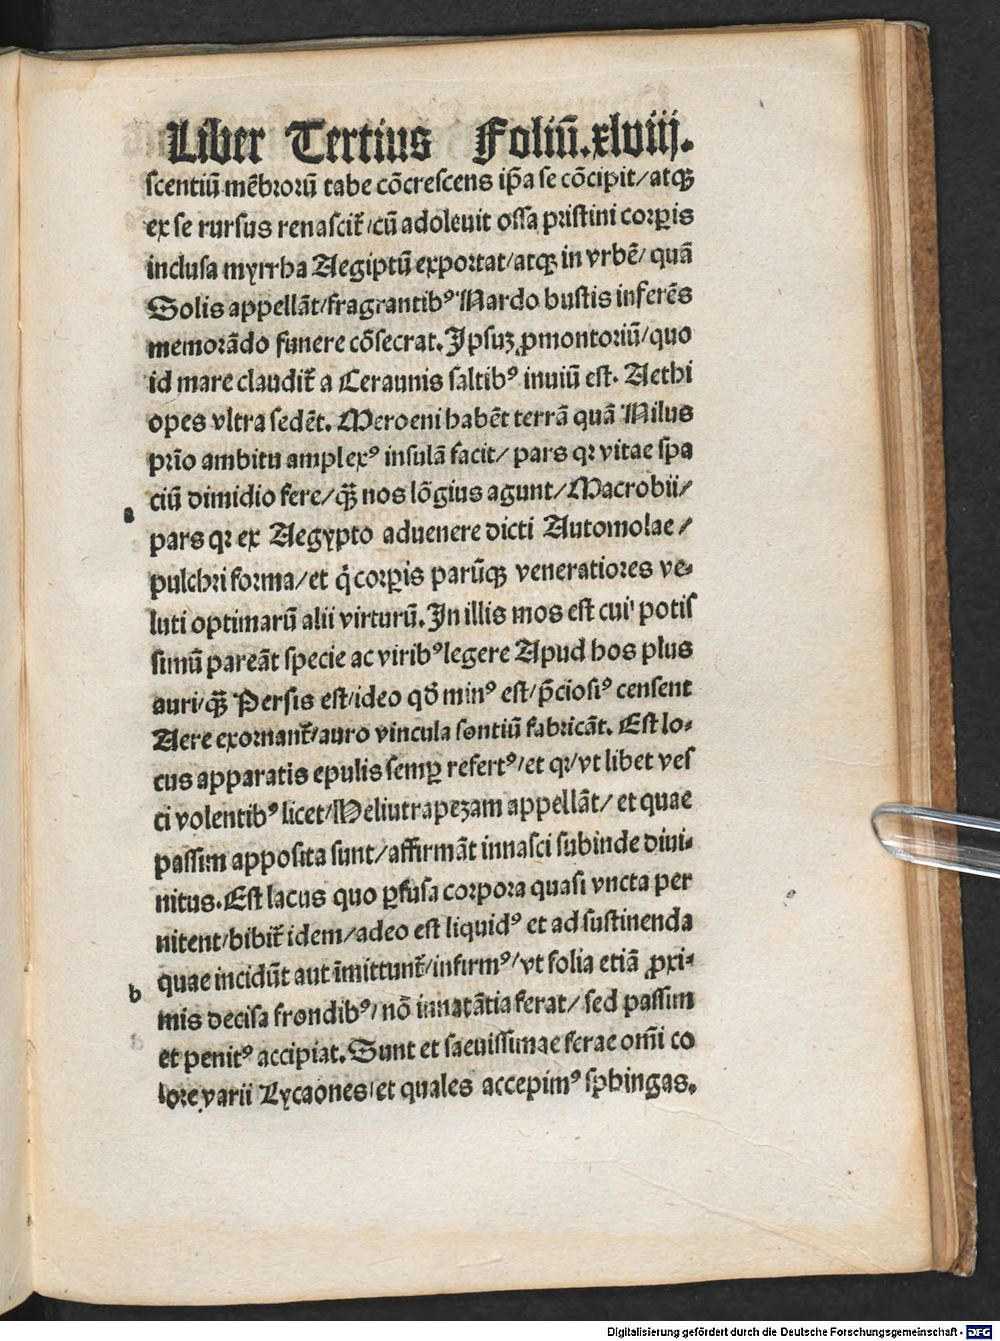 Liber Tertius Foliũ.xlviij.
scentiũ mẽbrorũ tabe cõcrescens ip̃a se cõcipit/atqꝫ
ex se rursus renascit̃/cũ adoleuit ossa pristini corꝑis
inclusa myrrha Aegiptũ exportat/atqꝫ in vrbẽ/quã
Solis appellãt/fragrantibꝰ Nardo bustis inferẽs
memorãdo funere cõsecrat.Ipsuꝫ ꝓmontoriũ/quo
id mare claudit̃ a Ceraunis saltibꝰ inuiũ est. Aethi
opes vltra sedẽt. Meroeni habẽt terrã quã Nilus
prĩo ambitu amplexꝰ insulã facit/pars qꝛ vitae spa
ciũ dimidio fere/qꝫ̃ nos lõgius agunt/Macrobii/
a
pars qꝛ ex Aegypto aduenere dicti Automolae/
pulchri forma/et q̃ corꝑis parũqꝫ veneratiores ve-
luti optimarũ alii virturũ.In illis mos est cui' potis
simũ pareãt specie ac viribꝰ legere Apud hos plus
auri/qꝫ̃ Persis est/ideo qð minꝰ est/p̃ciosiꝰ censent
Aere exornant̃/auro vincula sontiũ fabricãt. Est lo-
cus apparatis epulis semꝑ refertꝰ/et qꝛ/vt libet ves
ci volentibꝰ licet/Heliutrapezam appellãt/et quae
passim apposita sunt/affirmãt innasci subinde diui-
nitus.Est lacus quo ꝑfusa corpora quasi vncta per
nitent/bibit̃ idem/adeo est liquidꝰ et ad sustinenda
quae incidũt aut ĩmittunt̃/infirmꝰ/vt folia etiã ꝓxi-
b
mis decisa frondibꝰ/nõ innatãtia ferat/sed passim
et penitꝰ accipiat.Sunt et saeuissimae ferae om̃i co
lore varii Lycaones/et quales accepimꝰ sphingas.
Digitalisierung gefördert durch die Deutsche Forschungsgemeinschaft - DFG